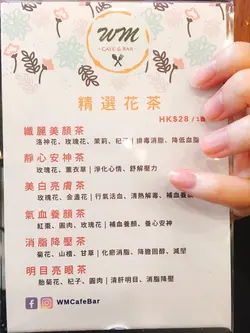 WM
CAFE & BAR
精選花茶
HK$28 /
纖麗美顏茶
洛神花、玫瑰花、茉莉、杞子 | 排毒消脂、降低血脂
靜心安神茶
玫瑰花、薰衣草 | 淨化心情、舒解壓力
美白亮膚茶
玫瑰花、金盞花 | 行氣活血、清熱解毒、補血養顏
氣血養顏茶
紅棗、圓肉、玫瑰花 | 補血養顏、養心安神
消脂降壓茶
菊花、山楂、甘草 | 化瘀消脂、降膽固醇、減壓
明目亮眼茶
胎菊花、杞子、圓肉 | 清肝明目、消脂降壓
WMCafeBar